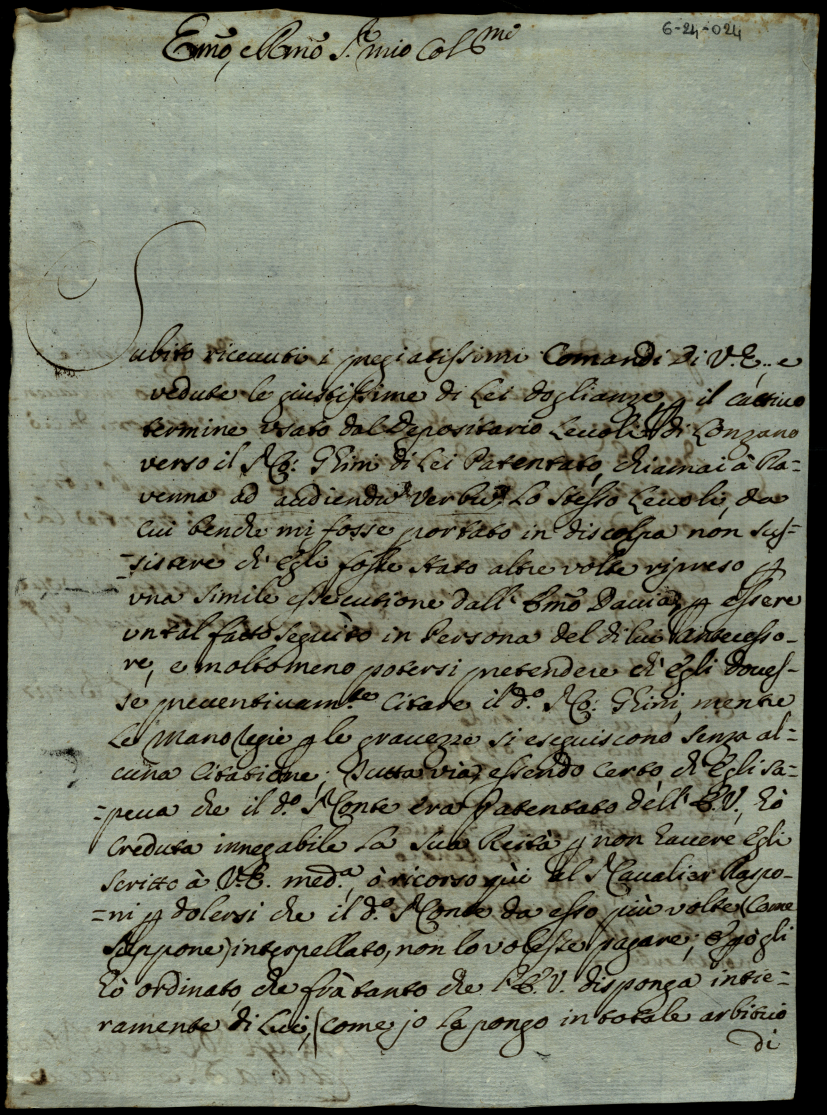 6-24-024
Emo, e Rmo Sr mio Colmo
Subito riceuuti i pregiatissimi Comandi di V.E., e
vedute le giustissime di Lei doglianze p il cattiuo
termine usato dal Depositario Leuoli di Lonzano
verso il Sr Co: Ghini di Lei Patentato, chiamai à Ra=
venna ad audiendu Verbu Lo stesso Leuoli, da
cui benche mi fosse portato in discolpa non sus=
=sistere ch'Egli fosse stato altre volte ripreso p
una simile essecutione dall'Emo Dauia, p essere
un tal fatto seguito in Persona del di lui Antecesso=
re, e molto meno potersi pretendere ch'Egli doues=
se preuentiuamte Citare il do. Sr Co: Ghini, mentre
Le Mano Regie p le grauezze si eseguiscono senza al=
cuna Citatione; Tutta via, essendo Certo, ch'Egli sa=
=peua che il do. Sr Conte era Patentato dell'E.V., hò
Creduta innegabile La Sua Reità p non hauere Egli
Scritto à V.E. meda, ò ricorso qùi al Sr Caualier Raspo=
=ni p dolersi che il do. Sr Conte da esso più volte (Come
Suppone) interpellato, non lo volesse pagare; E però gli
hò ordinato, che frà tanto che l'E.V. disponga intie=
ramente di Lui, (Come jo Lo pongo in totale arbitrio
di